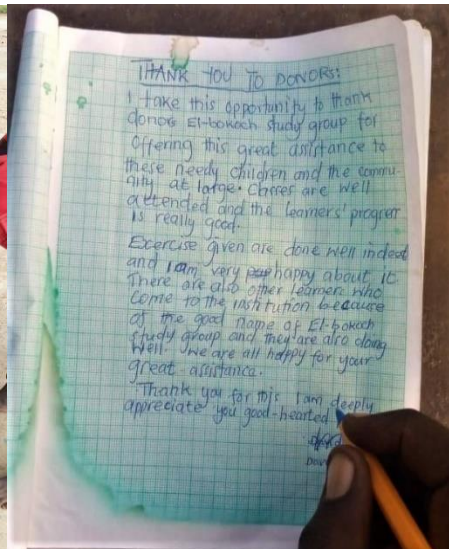 THANK YOU TO DONORS:
I take this opportunity to thank
donors El-bokoch study group for
offering this great assistance to
these needy children and the commu-
nity at large. Classes are well
attended and the learners' progress
is really good.
Exercise given are done well indeed
and I am very happy about it.
There are also other learners who
come to the institution because
of the good name of El-bokoch
study group and they are also doing
well. We are all happy for your
great assistance.
Thank you for this. I am deeply
appreciate you good-hearted